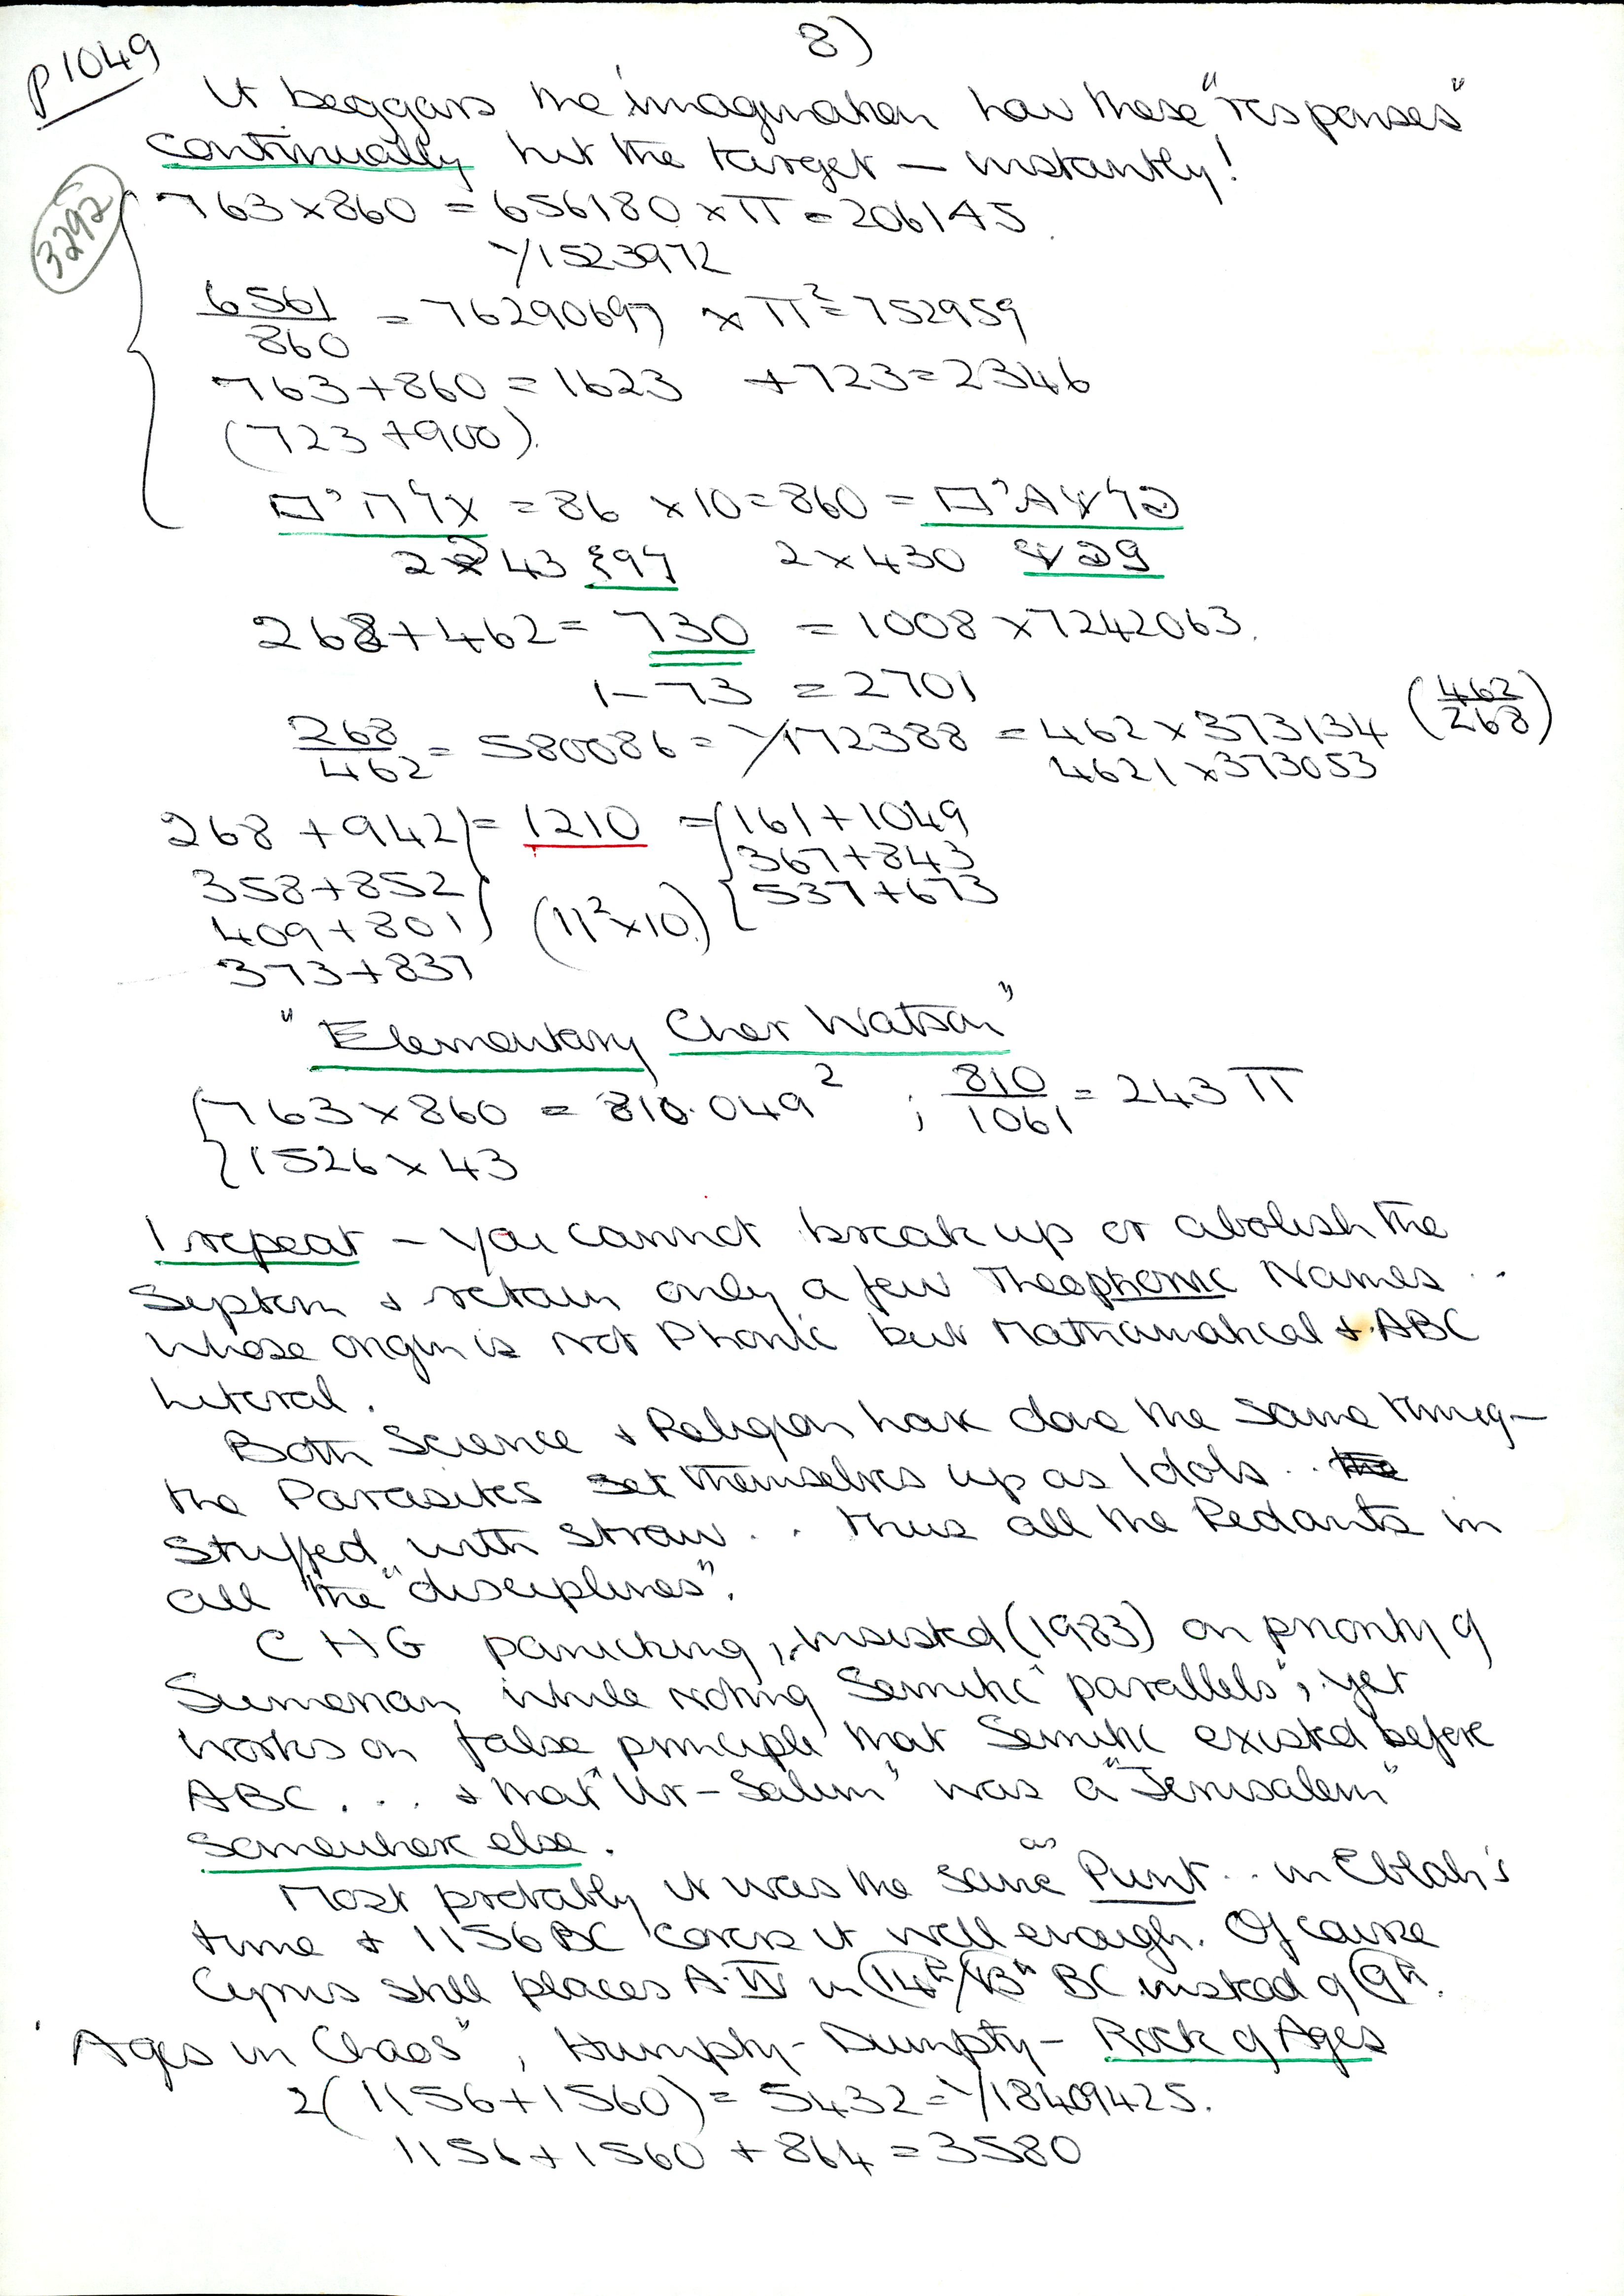 8)
P1049
It beggars the imagination how these "responses"
continually hit the target – instantly!
3292
763 x 860 = 656180 x π = 206145
γ/1523972
6561/860 = 76290697 x π² = 752959
763 + 860 = 1623 + 723 = 2346
(723 + 900).
= 86 x 10 = 860 =
2 x 43 2 x 430
268 + 462 = 730 = 1008 x 7242063.
1–73 = 2701
268/462 = 580086 = γ/172388 = 462 x 373134 (462/268)
4621 x 373053
268 + 942 = 1210 = 161 + 1049
367 + 843
358 + 852 537 + 673
409 + 801 (11² x 10)
373 + 837
"Elementary Cher Watson"
763 x 860 = 810.049² ; 810/1061 = 243 π
1526 x 43
I repeat – you cannot break up or abolish the
System & retain only a few Theophonic Names ..
whose origin is not Phonic but Mathamatical & ABC
Literal.
Both Science & Religion have done the same thing –
the Parasites set themselves up as Idols .. the
stuffed with straw .. thus all the Pedants in
all the "disciplines".
C H G panicking, insisted (1983) on priority of
Sumerian while noting Semitic "parallels", yet
works on false principle that Semitic existed before
ABC ... & that "Ur-Salim" was a "Jerusalem"
somewhere else.
Most probably it was the same as Punt .. in Eblah's
time & 1156 BC covers it well enough. Of course
Cyrus still places A.IV in 14th/13th BC instead of 9th.
"Ages in Chaos", Humpty-Dumpty – Rock of Ages
2(1156 + 1560) = 5432 = γ/18409425.
1156 + 1560 + 864 = 3580